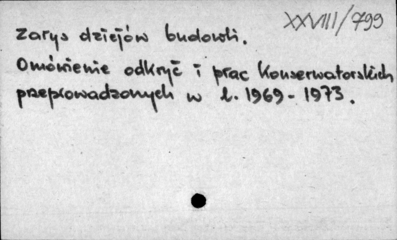 XXVIII/799
Zarys dziejów budowli.
Omówienie odkryć i prac konserwatorskich
przeprowadzonych w l. 1969 - 1973.